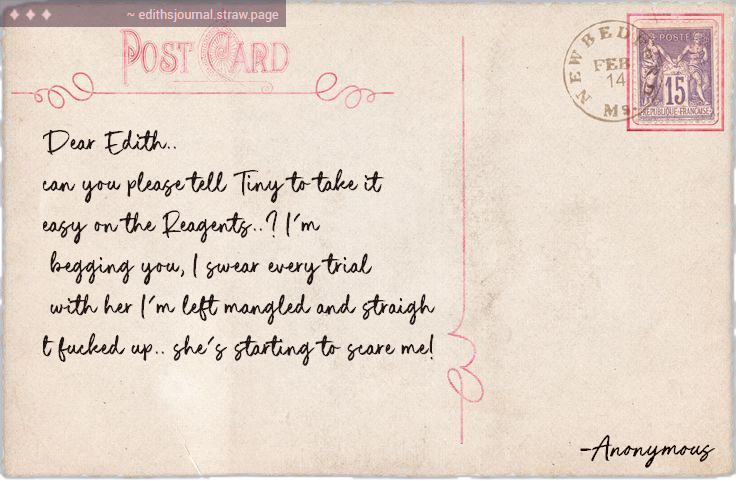 ♦ ♦ ♦ ~ edithsjournal.straw.page
POST CARD
NEW BEDFORD
FEB
14
Ms-
POSTE
15
REPUBLIQUE·FRANCAISE
Dear Edith..
can you please tell Tiny to take it
easy on the Reagents..? I'm
begging you, I swear every trial
with her I'm left mangled and straigh
t fucked up.. she's starting to scare me!
-Anonymous